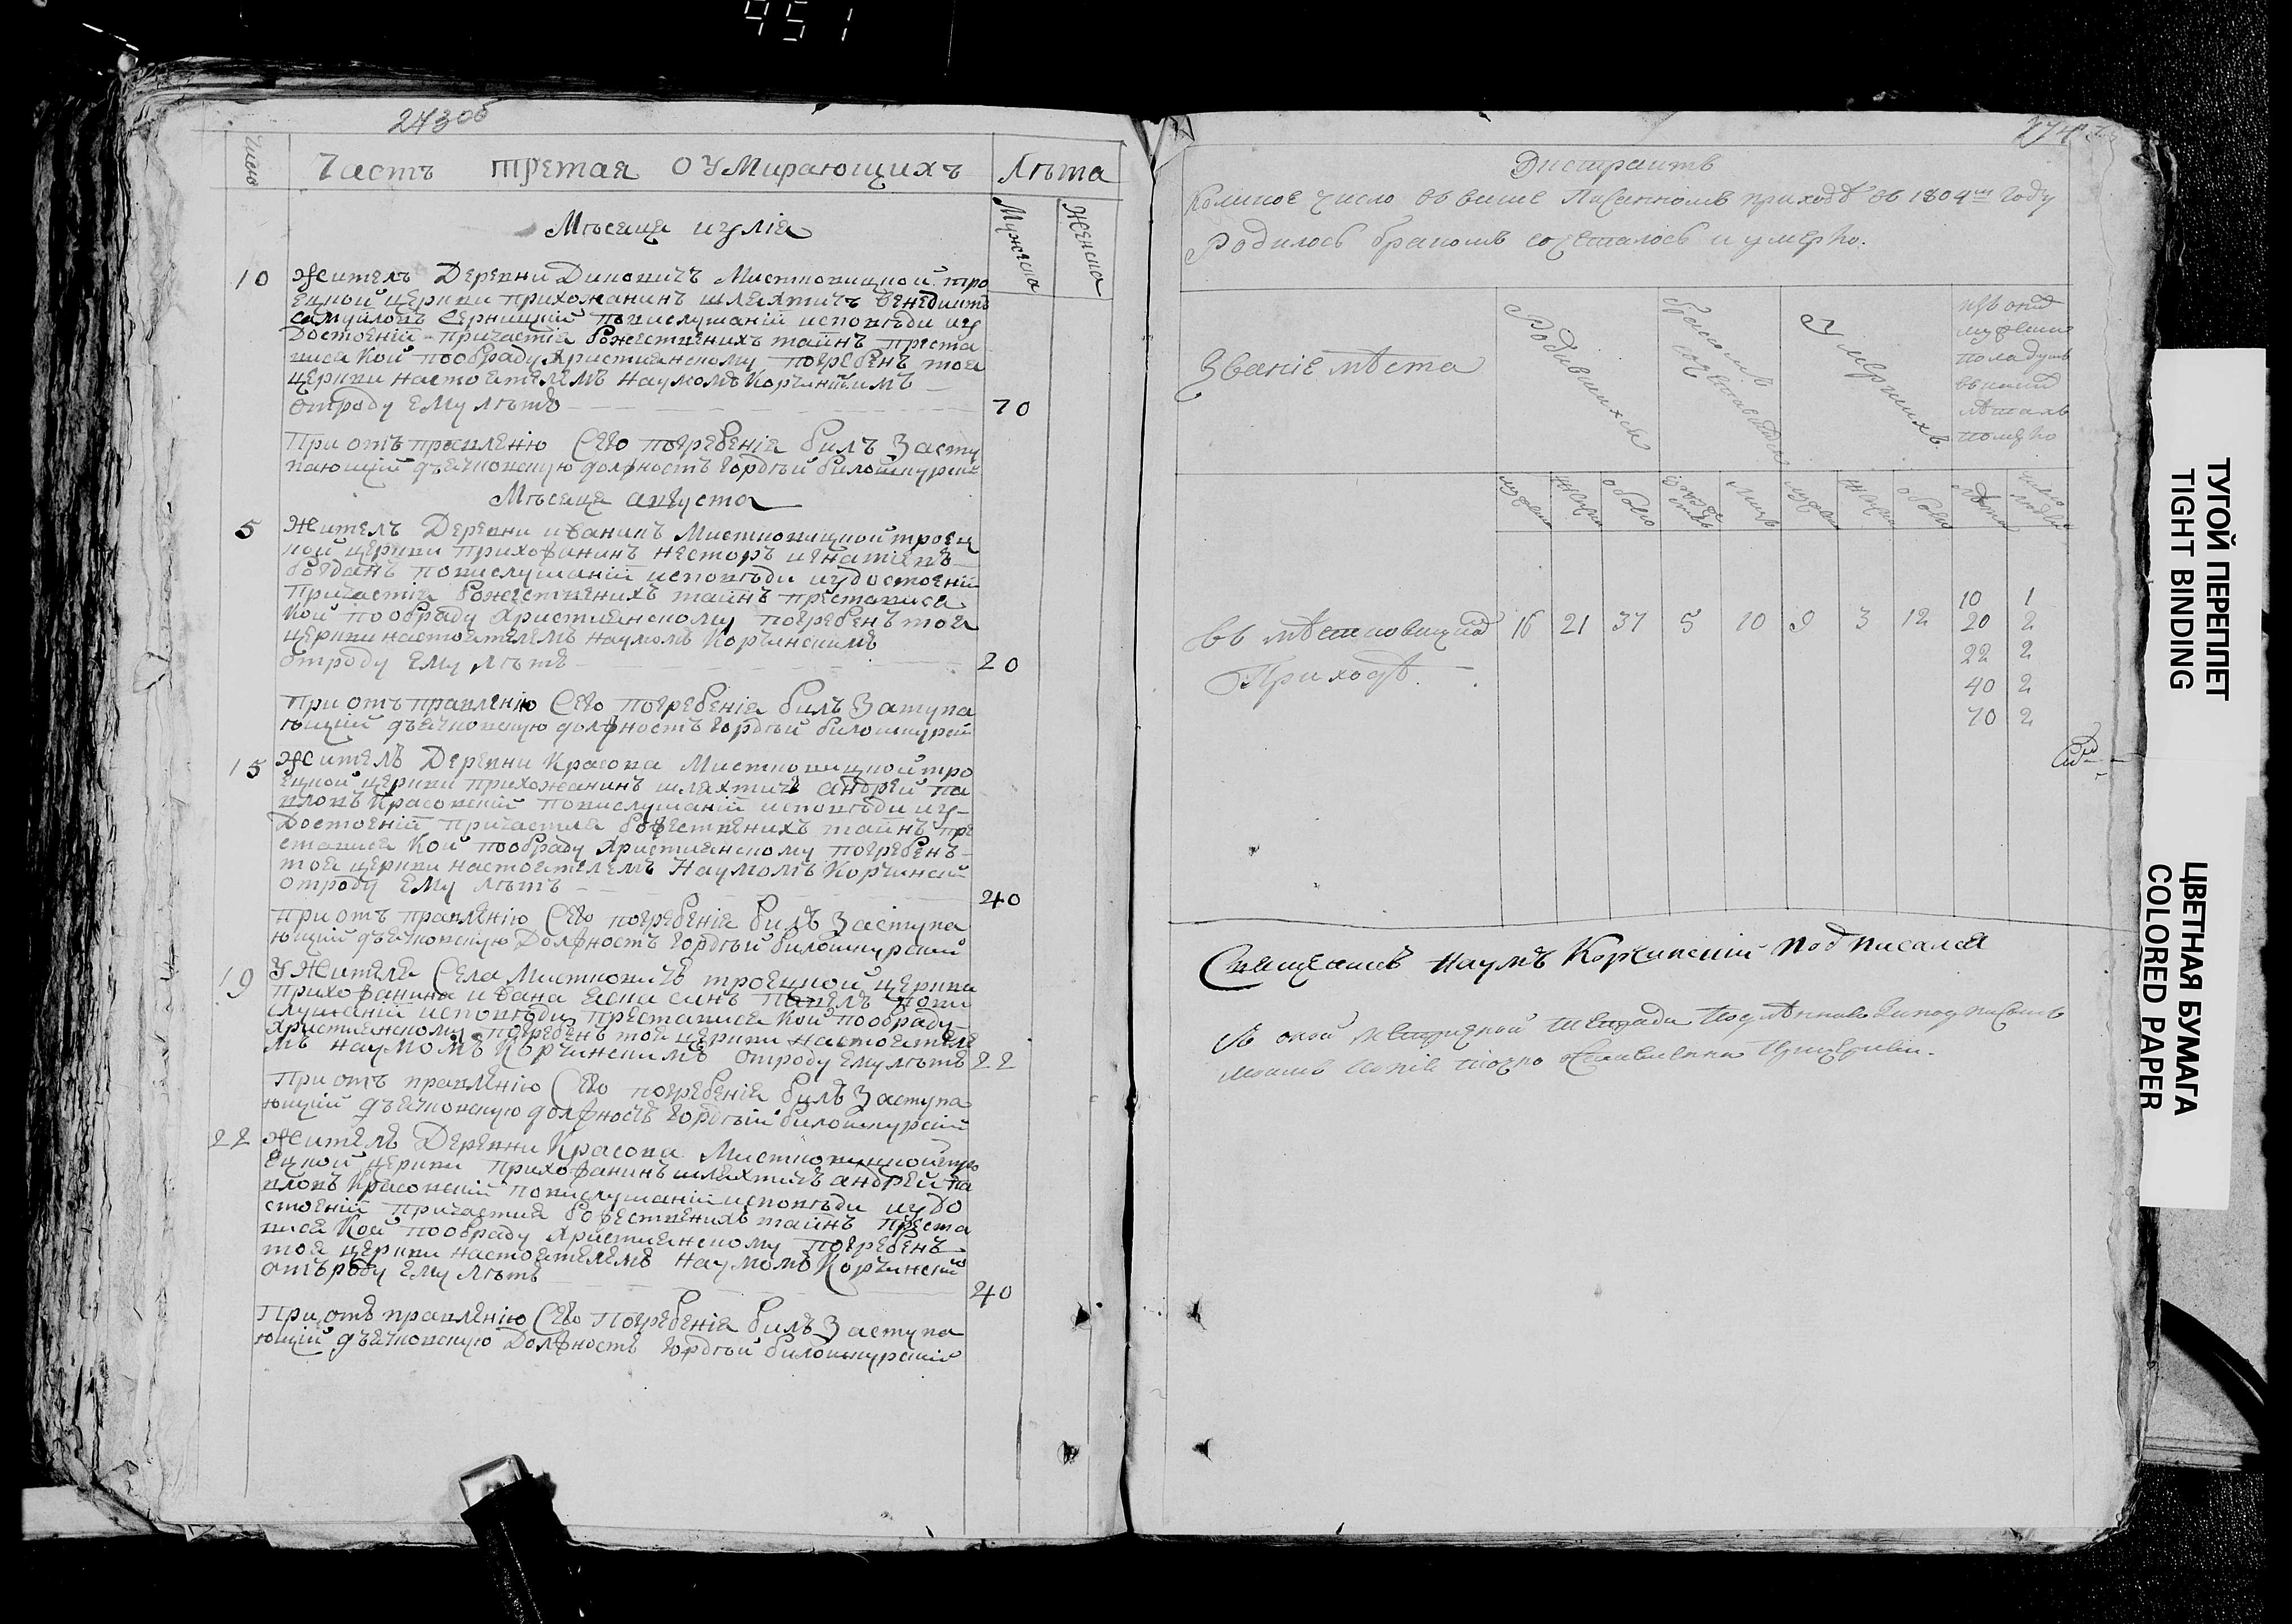 951
243об
Число
Часть третая о умирающихъ
Лѣта
Мужеска
Женска
Мѣсяца иулiя
10
Жителъ Деревни Диковичъ Мистковицкой тро
ецкой церкви прихожанинъ шляхтичъ Венедиктъ
самуйловъ Серницкiй повислушанiй исповѣди иу
Достоенiй причастiя Божественихъ тайнъ преста
вися Кой пообряду Християнскому погребенъ тоя
церкви настоятелемъ Наумомъ Корчинскимъ
отроду Ему лѣтъ
70
При отъправленiю Сего погребенiя билъ Засту
пающiй дъячковскую должность Гордѣй билошкурскiй
Мѣсяца августа
5
Жителъ Деревни иваникъ Мистковицкой троец
кой церкви прихожанинъ несторъ игнатiевъ
богданъ повислушанiй исповѣди иудостоенiй
Причастiя Божественихъ тайнъ преставися
Кой пообряду Християнскому погребенъ тоя
церкви настоятелемъ наумомъ Корчинскимъ
отроду Ему лѣтъ
20
При отъправленiю Сего погребенiя билъ Заступа
ющiй дъячковскую должность Гордѣй билошкурскiй
15
Жителъ Деревни Красова Мистковицкой тро
ецкой церкви прихожанинъ шляхтичъ андрей па
вловъ Красовскiй повислушанiй исповѣди иу
Достоенiй Причастия божественихъ тайнъ пре
ставися Кой пообряду Християнскому погребенъ
тоя церкви настоятелемъ Наумомъ Корчинский
отроду Ему лѣтъ
40
При отъ правленiю Сего погребенiя билъ Заступа
ющiй дъячковскую Должность Гордѣй билошкурскiй
19
У Жителя Села Мистковичъ троецкой церкви
прихожанина ивана синъ Павелъ пови
слушанiй исповѣди преставися Кой пообряду
Християнскому погребенъ тоя церкви настоятеле
мъ наумомъ Корчинскимъ отроду Ему лѣтъ
22
При отъ правленiю Сего погребенiя билъ Заступа
ющiй дъячковскую должность Гордѣй билошкурскiй
22
Жителъ Деревни Красови Мистковицкой тро
ецкой церкви прихожанинъ шляхтичъ андрей па
вловъ Красовскiй повислушанiй исповѣди иудо
стоенiй Причастия божественихъ тайнъ преста
вися Кой пообряду Християнскому погребенъ
тоя церкви настоятелемъ наумомъ Корчинский
отъроду Ему лѣтъ
40
При отъ правленiю Сего Погребенiя билъ Заступа
ющiй дъячковскую Должность Гордѣй билошкурскiй
274
Екстрактъ
Коликое число въ више Писанномъ приходѣ въ 1804мъ году
Родилось бракомъ сочеталось и умерло.
Званiе мѣста
Родившихся
бракомъ сочетавшихся
Умершихъ
мужеска
женска
обоего
Лицъ
мужеска
женска
обоего
лѣта
число людей
въ мѣстковицкомъ
Приходѣ.
16 21 37 5 10 9 3 12
10 1
20 2
22 2
40 2
70 2
Священникъ Наумъ Корчинскiй подписался
ТУГОЙ ПЕРЕПЛЕТ
TIGHT BINDING
ЦВЕТНАЯ БУМАГА
COLORED PAPER